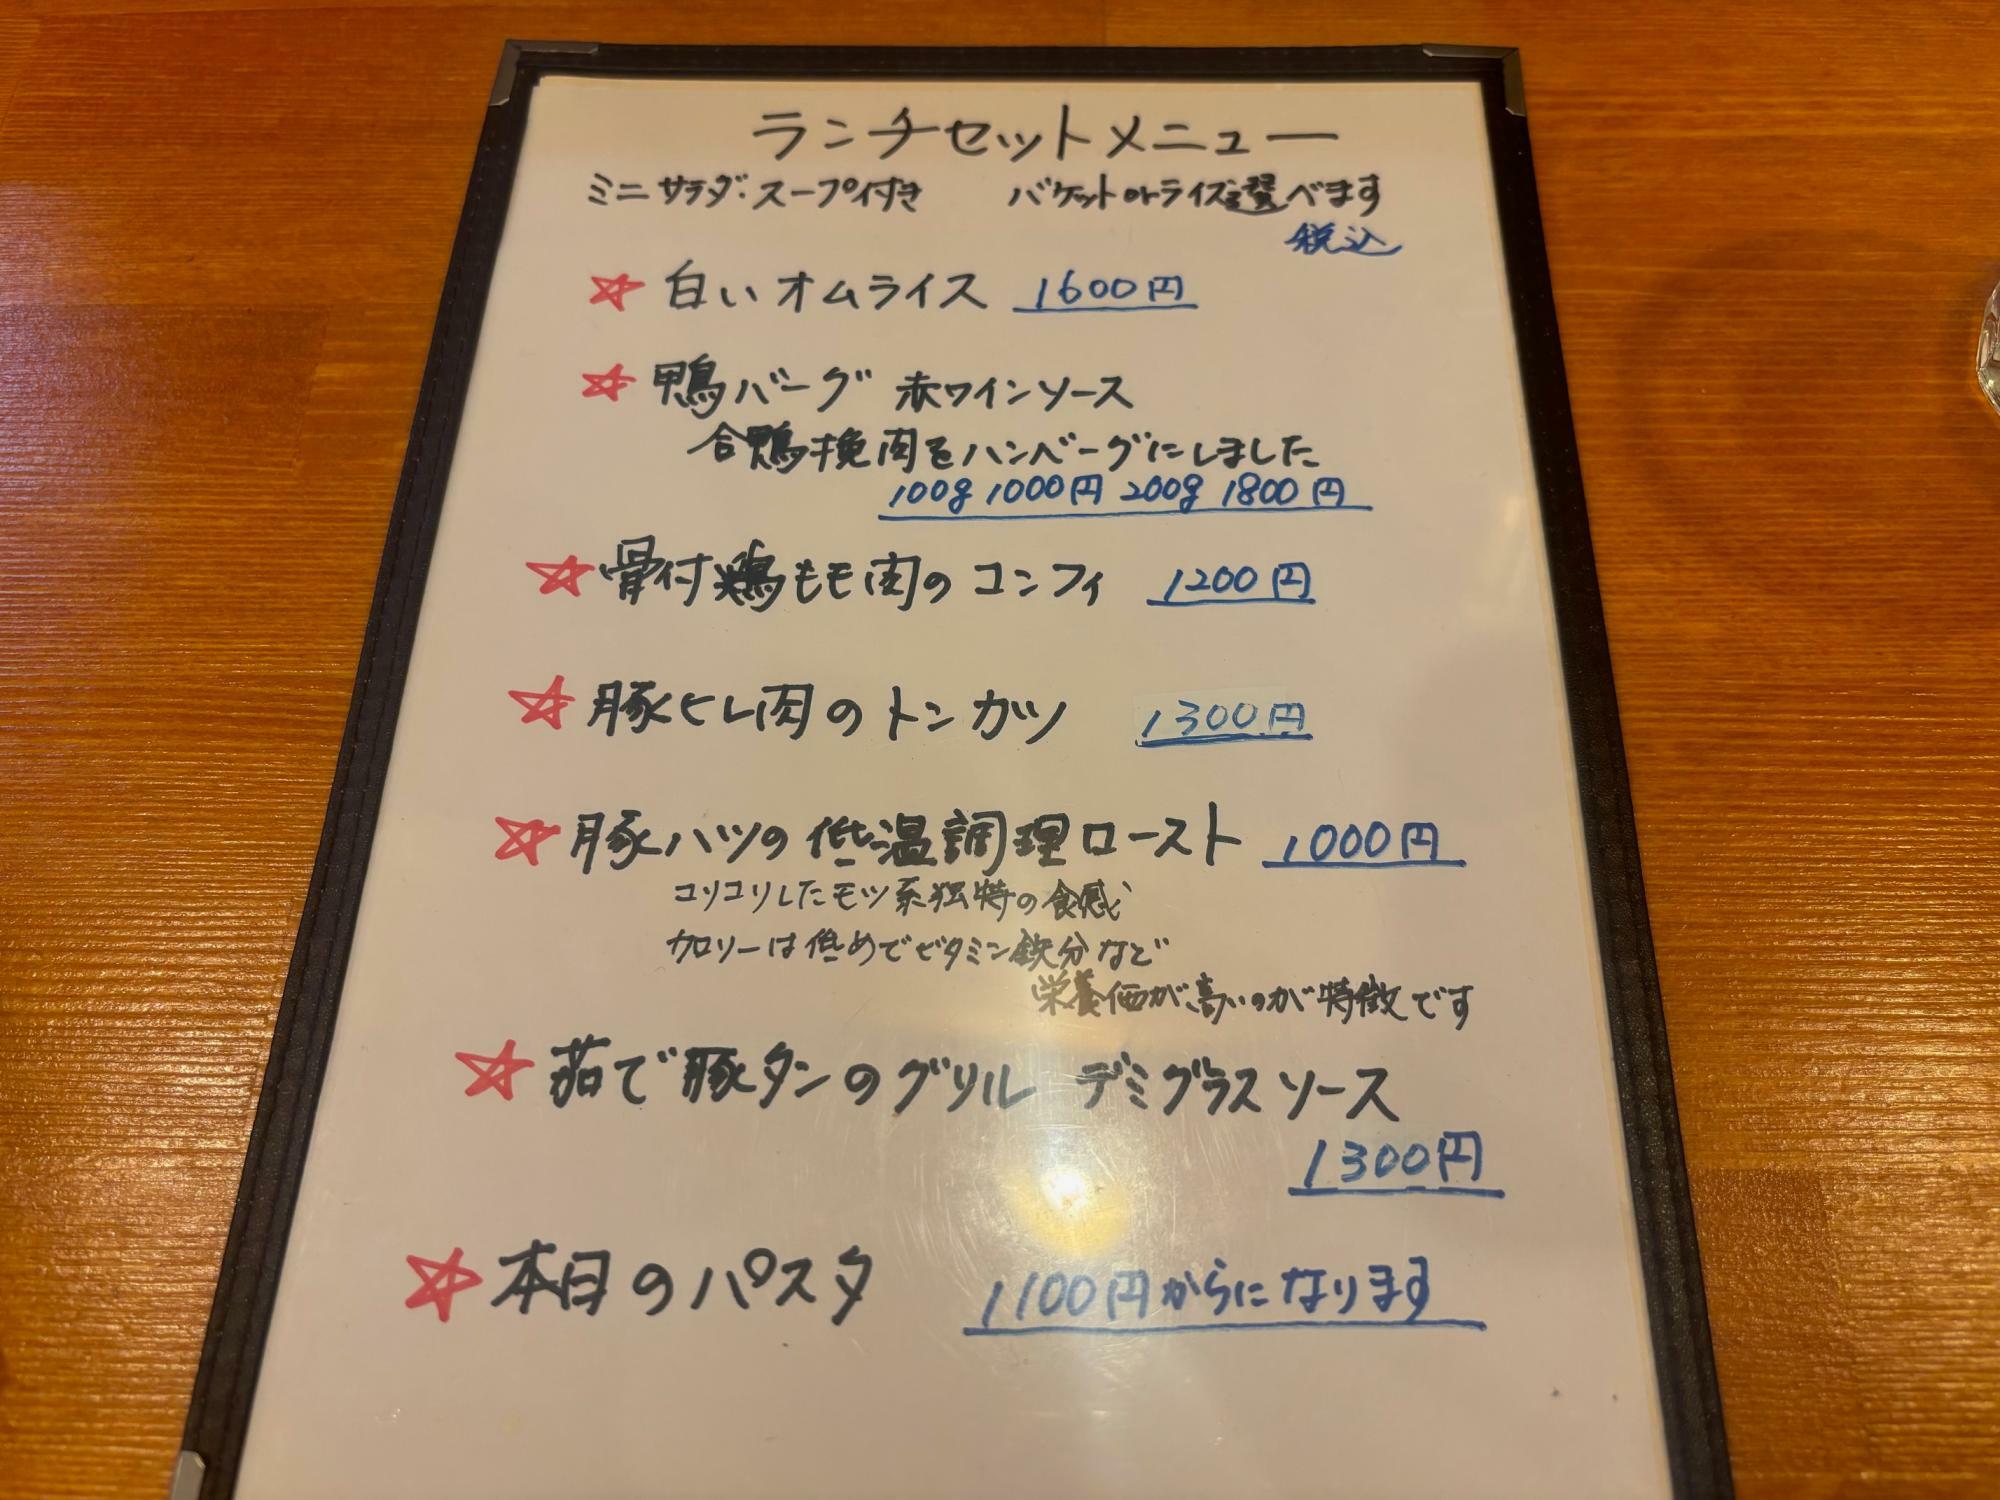 ランチセットメニュー
ミニサラダ・スープ付き バケットorライスを選べます
税込
☆ 白いオムライス 1600円
☆ 鴨バーグ 赤ワインソース
合鴨挽肉をハンバーグにしました
100g 1000円 200g 1800円
☆ 骨付鶏もも肉のコンフィ 1200円
☆ 豚ヒレ肉のトンカツ 1300円
☆ 豚ハツの低温調理ロースト 1000円
コリコリしたモツ系独特の食感
カロリーは低めでビタミン鉄分など
栄養価が高いのが特徴です
☆ 茹で豚タンのグリル デミグラスソース
1300円
☆ 本日のパスタ 1100円からになります